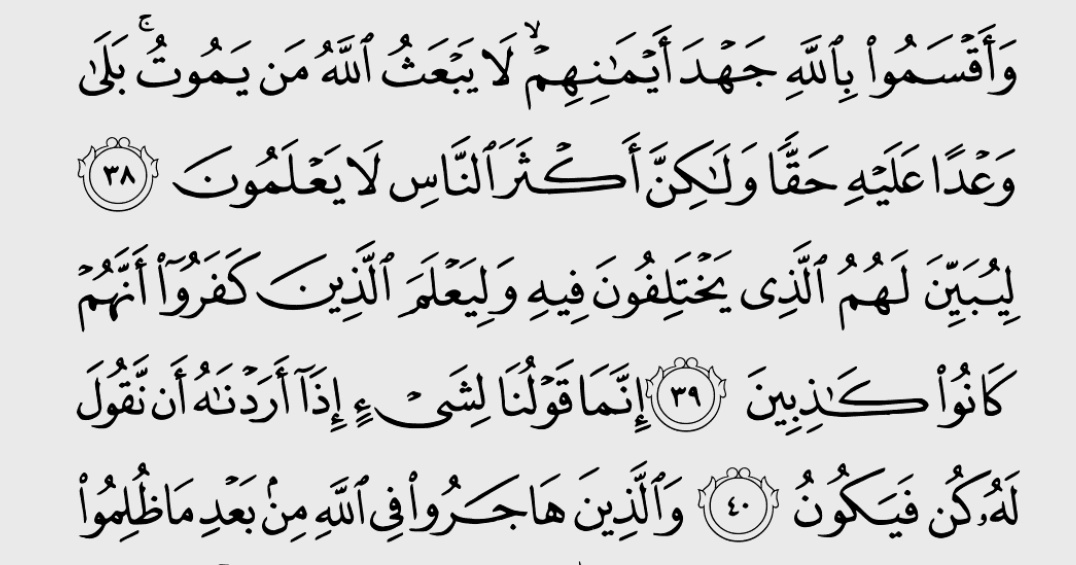 وَأَقْسَمُوا۟ بِٱللَّهِ جَهْدَ أَيْمَـٰنِهِمْ ۙ لَا يَبْعَثُ ٱللَّهُ مَن يَمُوتُ ۚ بَلَىٰ
وَعْدًا عَلَيْهِ حَقًّا وَلَـٰكِنَّ أَكْثَرَ ٱلنَّاسِ لَا يَعْلَمُونَ ٣٨
لِيُبَيِّنَ لَهُمُ ٱلَّذِى يَخْتَلِفُونَ فِيهِ وَلِيَعْلَمَ ٱلَّذِينَ كَفَرُوٓا۟ أَنَّهُمْ
كَانُوا۟ كَـٰذِبِينَ ٣٩ إِنَّمَا قَوْلُنَا لِشَىْءٍ إِذَآ أَرَدْنَـٰهُ أَن نَّقُولَ
لَهُۥ كُن فَيَكُونُ ٤٠ وَٱلَّذِينَ هَاجَرُوا۟ فِى ٱللَّهِ مِنۢ بَعْدِ مَا ظُلِمُوا۟